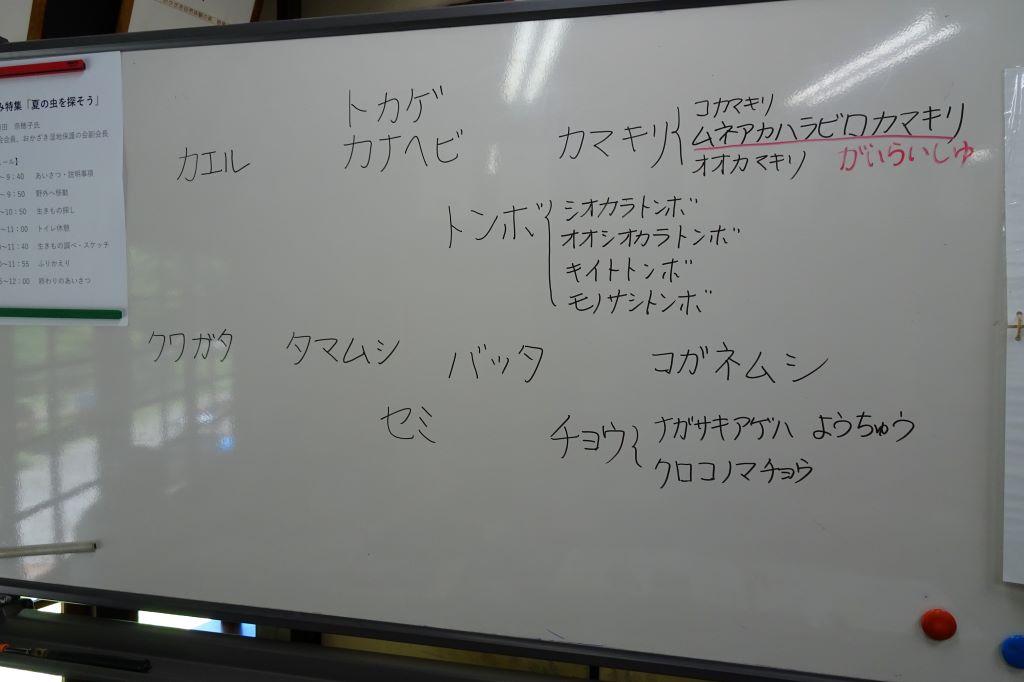 み特集「夏の虫を探そう」
会会員、おかざき湿地保護の会副会長
ュール】
～9：40 あいさつ・説明事項
～9：50 野外へ移動
～10：50 生きもの探し
～11：00 トイレ休憩
～11：40 生きもの調べ・スケッチ
～11：55 ふりかえり
～12：00 終わりのあいさつ
カエル
トカゲ
カナヘビ
カマキリ
コカマキリ
ムネアカハラビロカマキリ
オオカマキリ がいらいしゅ
トンボ
シオカラトンボ
オオシオカラトンボ
キイトトンボ
モノサシトンボ
クワガタ
タマムシ
バッタ
コガネムシ
セミ
チョウ
ナガサキアゲハ ようちゅう
クロコノマチョウ